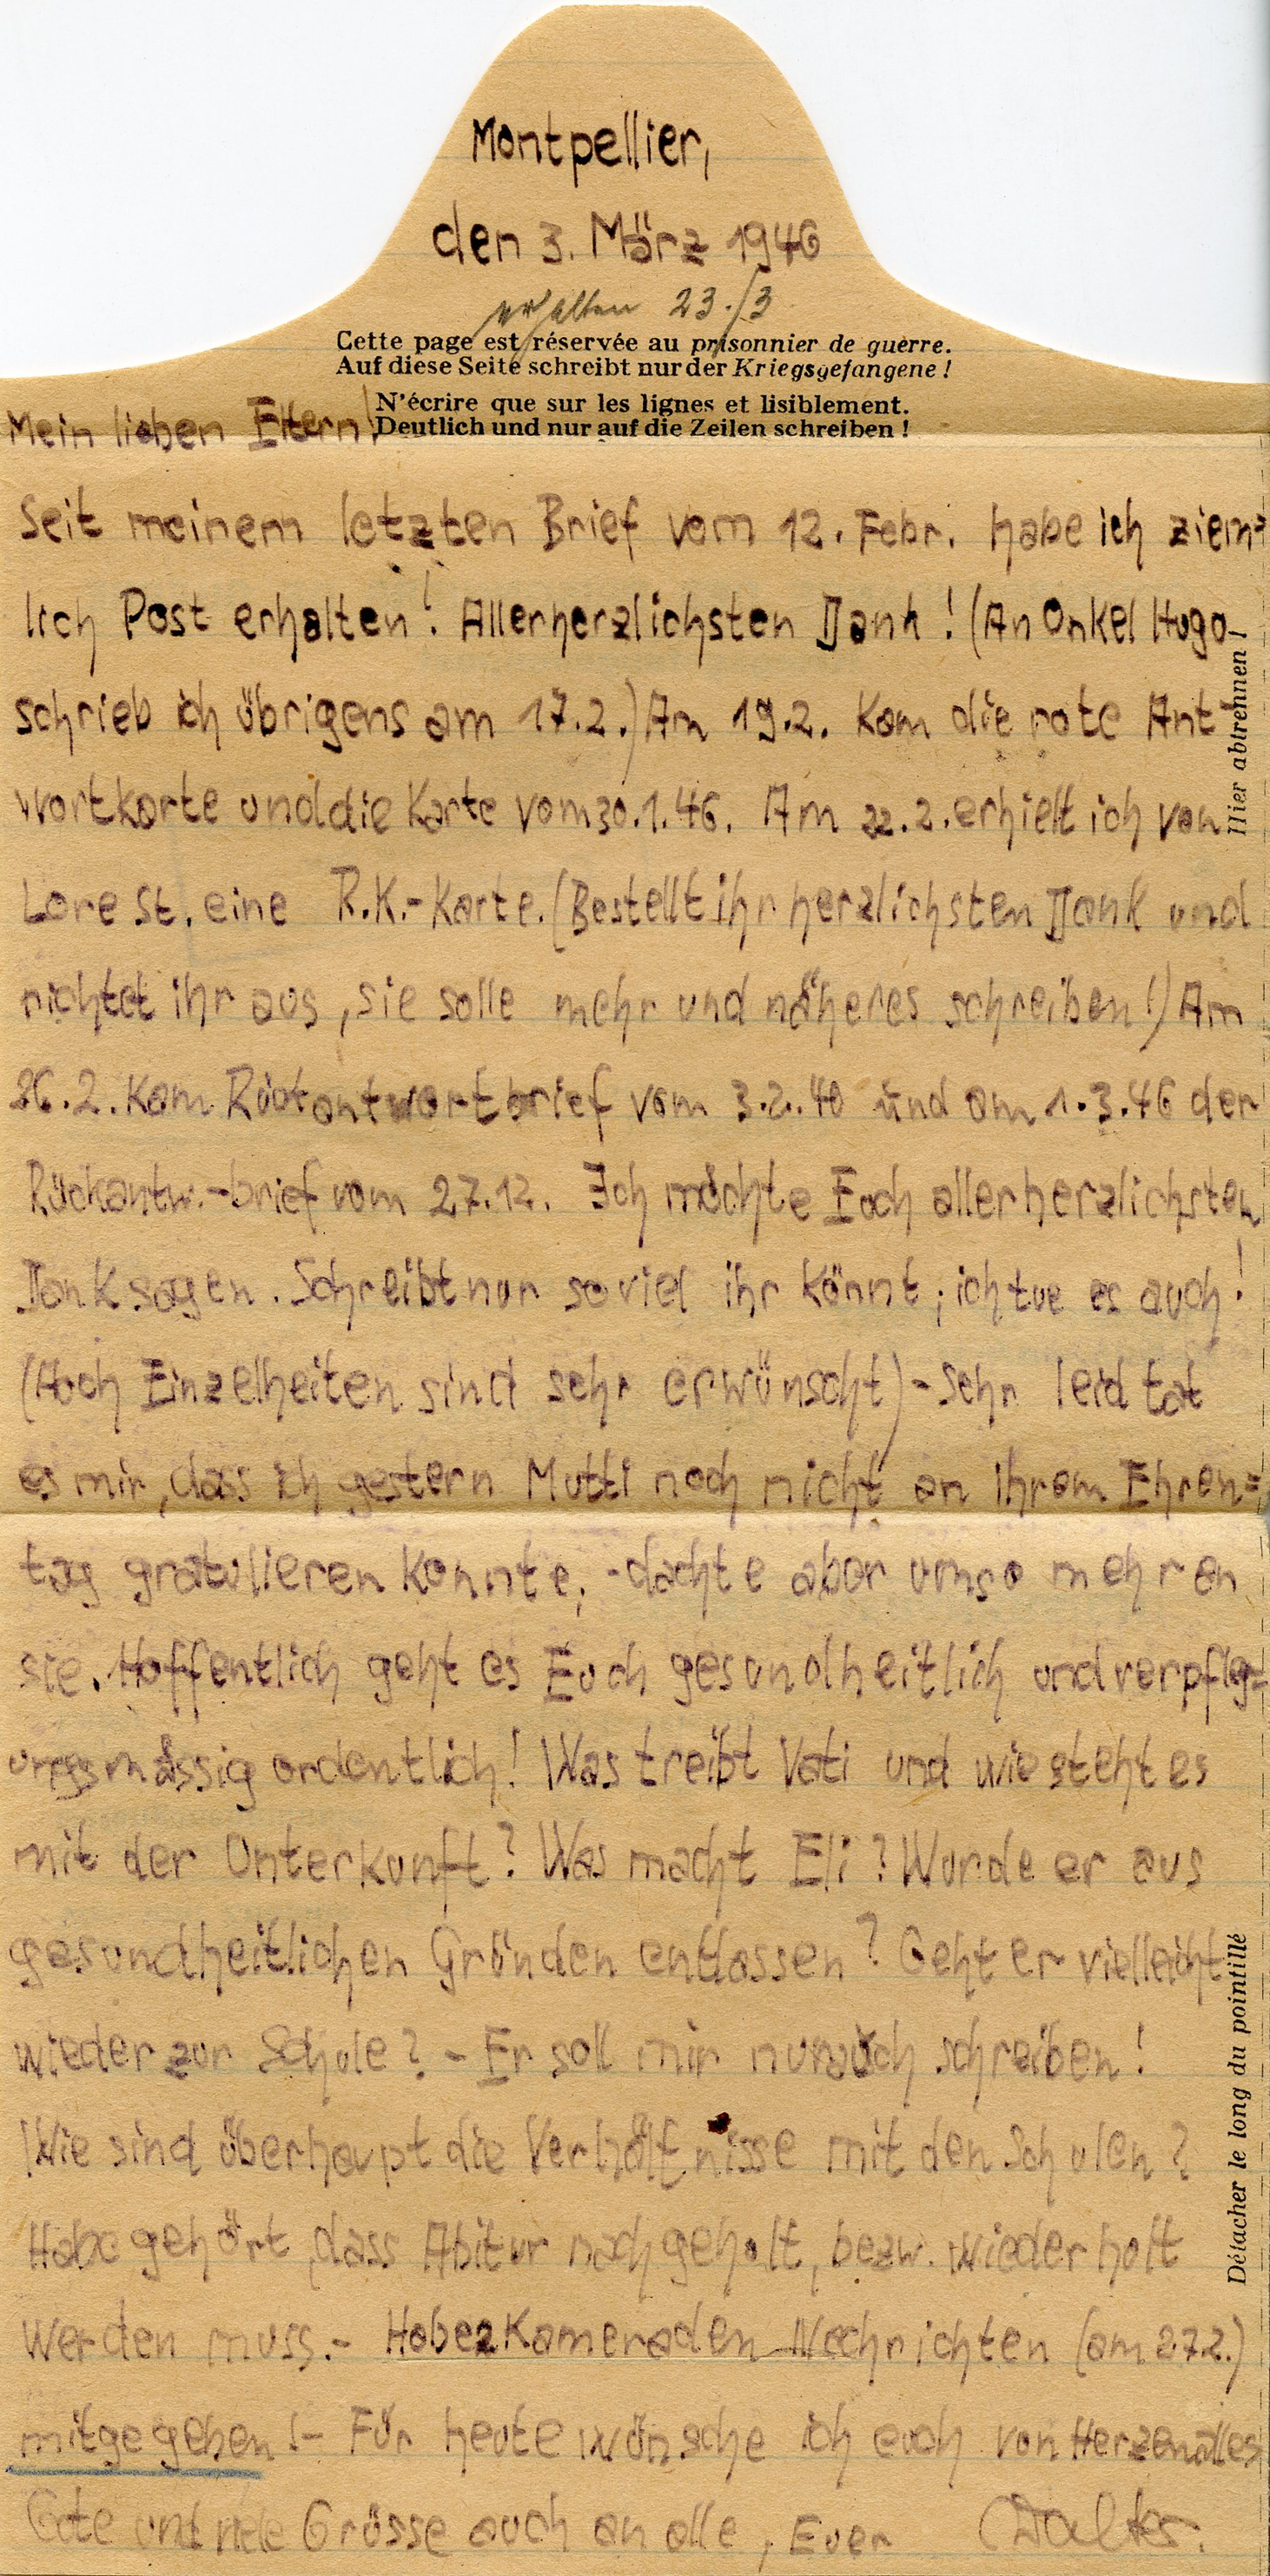 Montpellier,
den 3. März 1946
erhalten 23./3
Cette page est réservée au prisonnier de guerre.
Auf diese Seite schreibt nur der Kriegsgefangene !
N'écrire que sur les lignes et lisiblement.
Deutlich und nur auf die Zeilen schreiben !
Mein lieben Eltern!
Seit meinem letzten Brief vom 12. Febr. habe ich ziem=
lich Post erhalten! Allerherzlichsten Dank! (An Onkel Hugo
schrieb ich übrigens am 17.2.) Am 19.2. kam die rote Ant-
wortkarte und die Karte vom 30.1.46. Am 22.2. erhielt ich von
Lore St. eine R.K.-Karte. (Bestellt ihr herzlichsten Dank und
richtet ihr aus, sie solle mehr und näheres schreiben!) Am
26.2. kam Rückantwortbrief vom 3.2.46 und am 1.3.46 der
Rückantw.-brief vom 27.12. Ich möchte Euch allerherzlichsten
Dank sagen. Schreibt nur soviel ihr könnt; ich tue es auch!
(Auch Einzelheiten sind sehr erwünscht) - Sehr leid tat
es mir, dass ich gestern Mutti noch nicht an ihrem Ehren=
tag gratulieren konnte, - dachte aber umso mehr an
sie. Hoffentlich geht es Euch gesundheitlich und verpfleg=
ungsmässig ordentlich! Was treibt Vati und wie steht es
mit der Unterkunft? Was macht Eli? Wurde er aus
gesundheitlichen Gründen entlassen? Geht er vielleicht
wieder zur Schule? - Er soll mir nur auch schreiben!
Wie sind überhaupt die Verhältnisse mit den Schulen?
Habe gehört, dass Abitur nachgeholt, bezw. wiederholt
werden muss. - Habe 2 Kameraden Nachrichten (am 27.2.)
mitgegeben! - Für heute wünsche ich euch von Herzen alles
Gute und viele Grüsse auch an alle, Euer Walter.
Hier abtrennen !
Détacher le long du pointillé